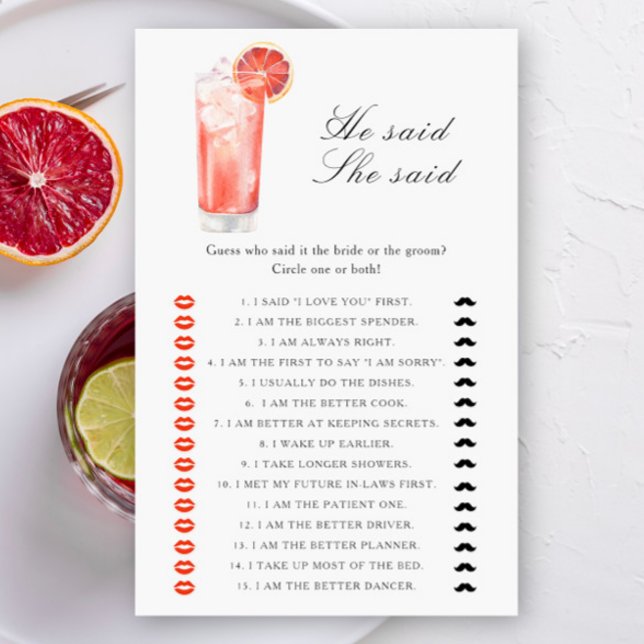 He said
She said
Guess who said it the bride or the groom?
Circle one or both!
1. I SAID "I LOVE YOU" FIRST.
2. I AM THE BIGGEST SPENDER.
3. I AM ALWAYS RIGHT.
4. I AM THE FIRST TO SAY "I AM SORRY".
5. I USUALLY DO THE DISHES.
6. I AM THE BETTER COOK.
7. I AM BETTER AT KEEPING SECRETS.
8. I WAKE UP EARLIER.
9. I TAKE LONGER SHOWERS.
10. I MET MY FUTURE IN-LAWS FIRST.
11. I AM THE PATIENT ONE.
12. I AM THE BETTER DRIVER.
13. I AM THE BETTER PLANNER.
14. I TAKE UP MOST OF THE BED.
15. I AM THE BETTER DANCER.